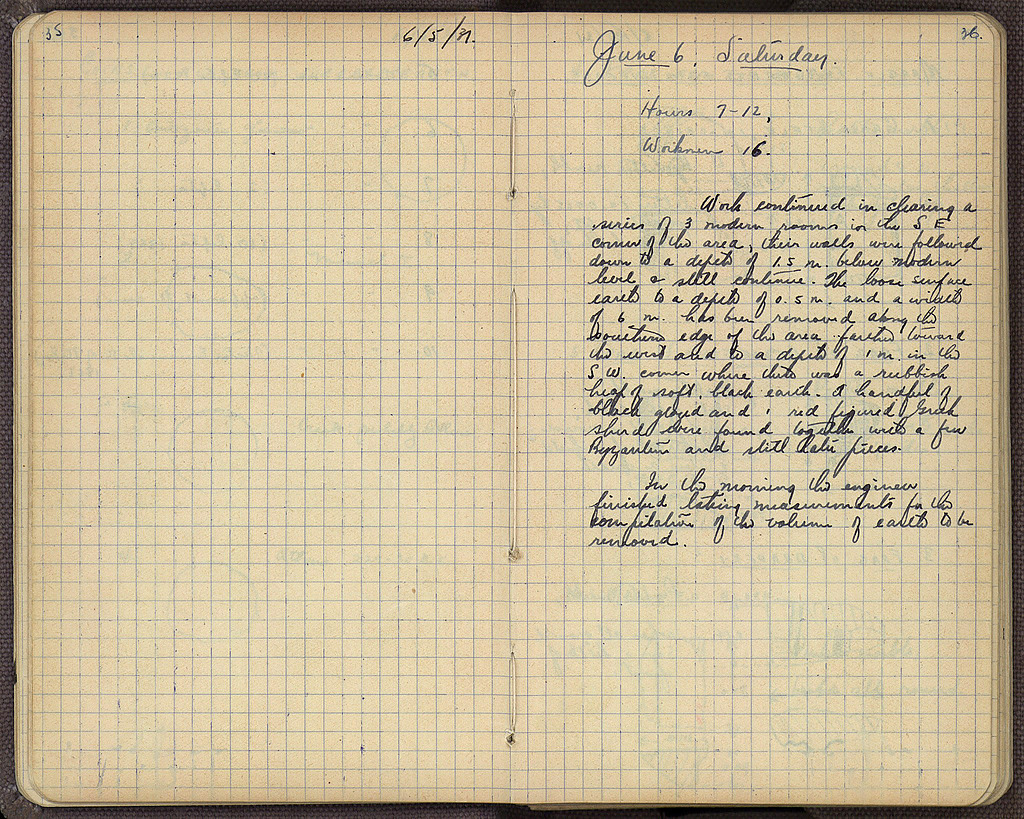 35
6/5/31.
36.
June 6, Saturday.
Hours 7-12,
Workmen 16.
Work continued in clearing a
series of 3 modern rooms in the S E
corner of the area, their walls were followed
down to a depth of 1.5 m. below modern
level & still continue. The loose surface
earth to a depth of 0.5 m. and a width
of 6 m. has been removed along the
southern edge of the area farther toward
the west and to a depth of 1 m. in the
S.W. corner where there was a rubbish
heap of soft, black earth. A handful of
black glazed and 1 red figured Greek
sherd were found together with a few
Byzantine and still later pieces.
In the morning the engineer
finished taking measurements for the
computation of the volume of earth to be
removed.